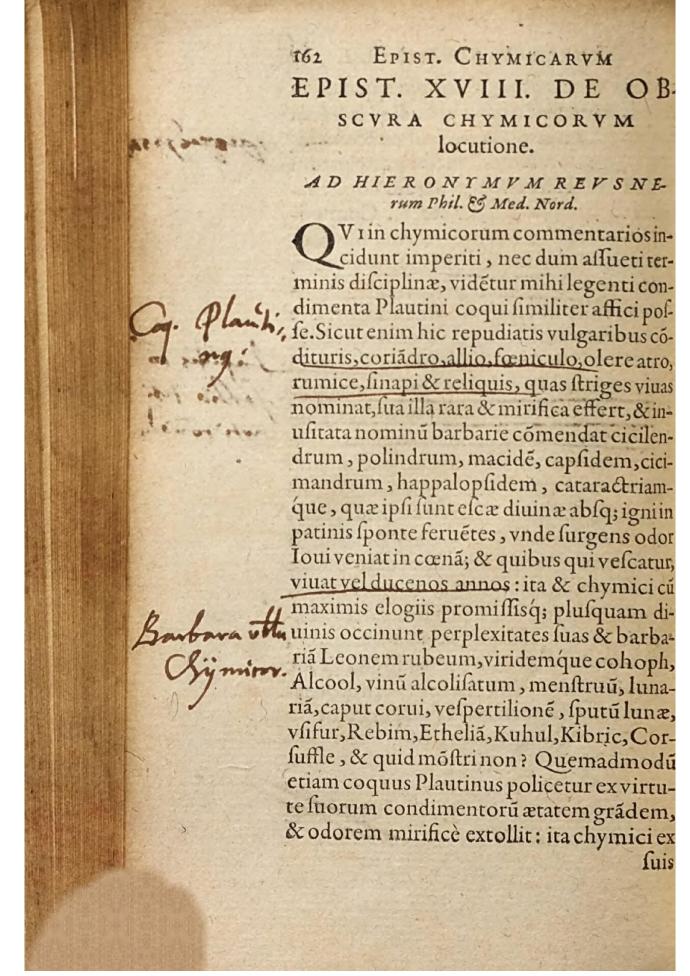 162 EPIST. CHYMICARVM
EPIST. XVIII. DE OB-
SCVRA CHYMICORVM
locutione.
AD HIERONYMVM REVSNE-
rum Phil. & Med. Nord.
QVI in chymicorum commentarios in-
cidunt imperiti, nec dum aſſueti ter-
minis diſciplinæ, vidētur mihi legenti con-
dimenta Plautini coqui ſimiliter affici poſ-
ſe. Sicut enim hic repudiatis vulgaribus cō-
dituris, coriādro, allio, fœniculo, olere atro,
rumice, ſinapi & reliquis, quas ſtriges viuas
nominat, ſua illa rara & mirifica effert, & in-
uſitata nominū barbarie cōmendat cicilen-
drum, polindrum, macidē, capſidem, cici-
mandrum, happalopſidem, cataractriam-
q́ue, quæ ipſi ſunt eſcæ diuinæ abſq; igni in
patinis ſponte feruētes, vnde ſurgens odor
Ioui veniat in cœnā; & quibus qui veſcatur,
viuat vel ducenos annos: ita & chymici cū
maximis elogiis promiſſisq́; pluſquam di-
uinis occinunt perplexitates ſuas & barba-
riā Leonem rubeum, viridemq́ue cohoph,
Alcool, vinū alcoliſatum, menſtruū, luna-
riā, caput corui, veſpertilionē, ſputū lunæ,
vſifur, Rebim, Etheliā, Kuhul, Kibric, Cor-
ſuffle, & quid mōſtri non? Quemadmodū
etiam coquus Plautinus policetur ex virtu-
te ſuorum condimentorū ætatem grādem,
& odorem mirificè extollit: ita chymici ex
ſuis
Coq. Plauti-
ng:
Barbara
Chÿmicor.